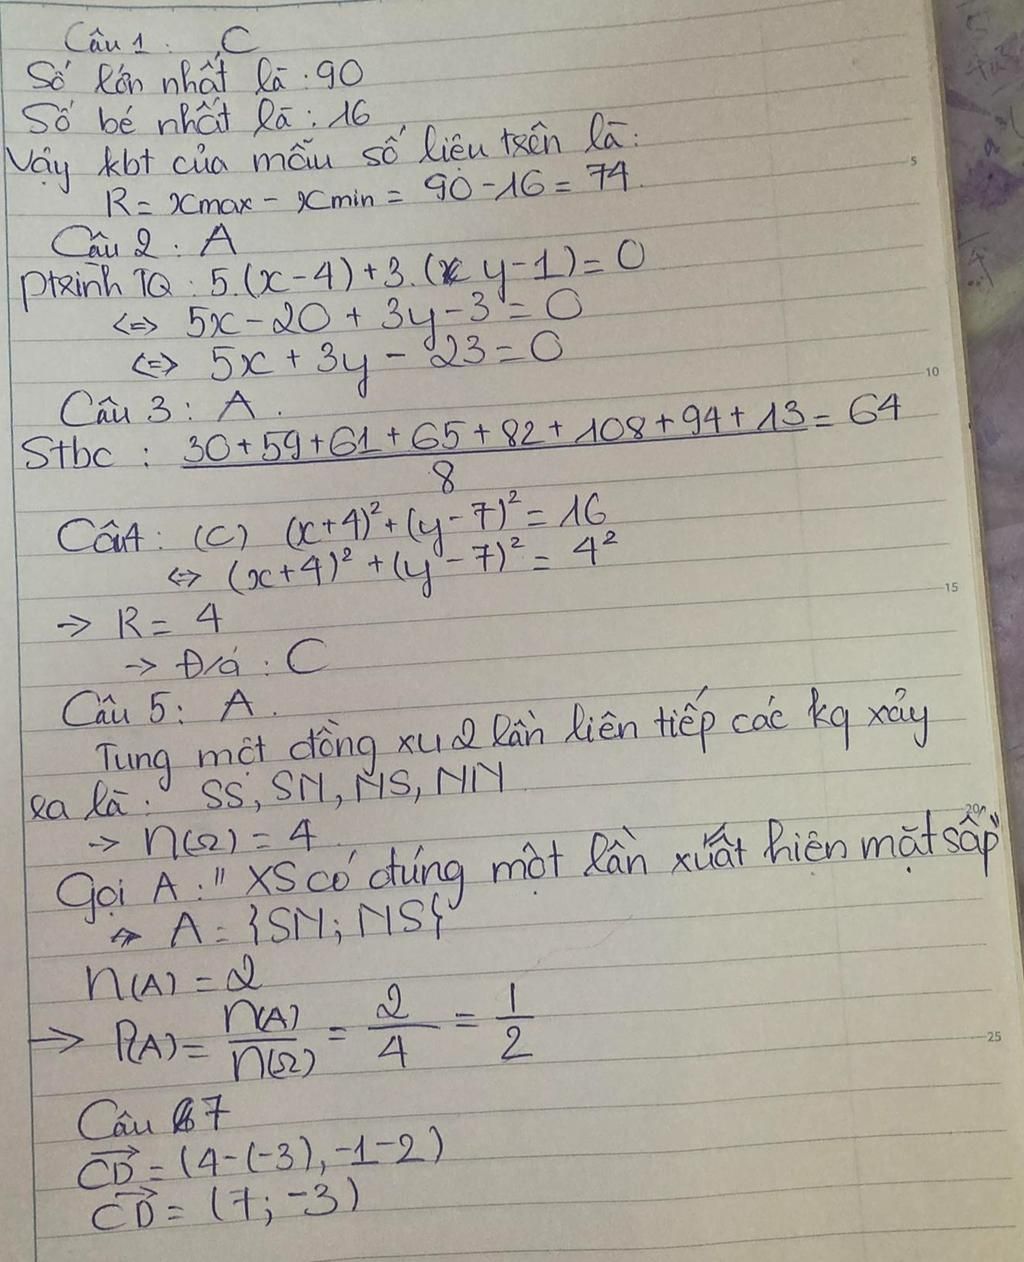 Câu 1 : C
Số lớn nhất là : 90
Số bé nhất là : 16
Vậy kbt của mẫu số liệu trên là :
R = xmax - xmin = 90 - 16 = 74.
Câu 2 : A
ptrình TQ : 5.(x-4)+3.(y-1)=0
<=> 5x - 20 + 3y - 3 = 0
<=> 5x + 3y - 23 = 0
Câu 3 : A.
Stbc : (30+59+61+65+82+108+94+13)/8 = 64
Câu4: (C) (x+4)²+(y-7)²= 16
<=> (x+4)² +(y-7)² = 4²
-> R = 4
-> Đ/á : C
Câu 5 : A.
Tung một đồng xu 2 lần liên tiếp các kq xảy
ra là : SS, SN, NS, NN
-> n(Ω) = 4
Gọi A : " XS có đúng một lần xuất hiện mặt sấp"
=> A = {SN; NS}
n(A) = 2
-> P(A) = n(A)/n(Ω) = 2/4 = 1/2
Câu 7
CD→ = (4-(-3), -1-2)
CD→ = (7; -3)
5
10
15
20
25